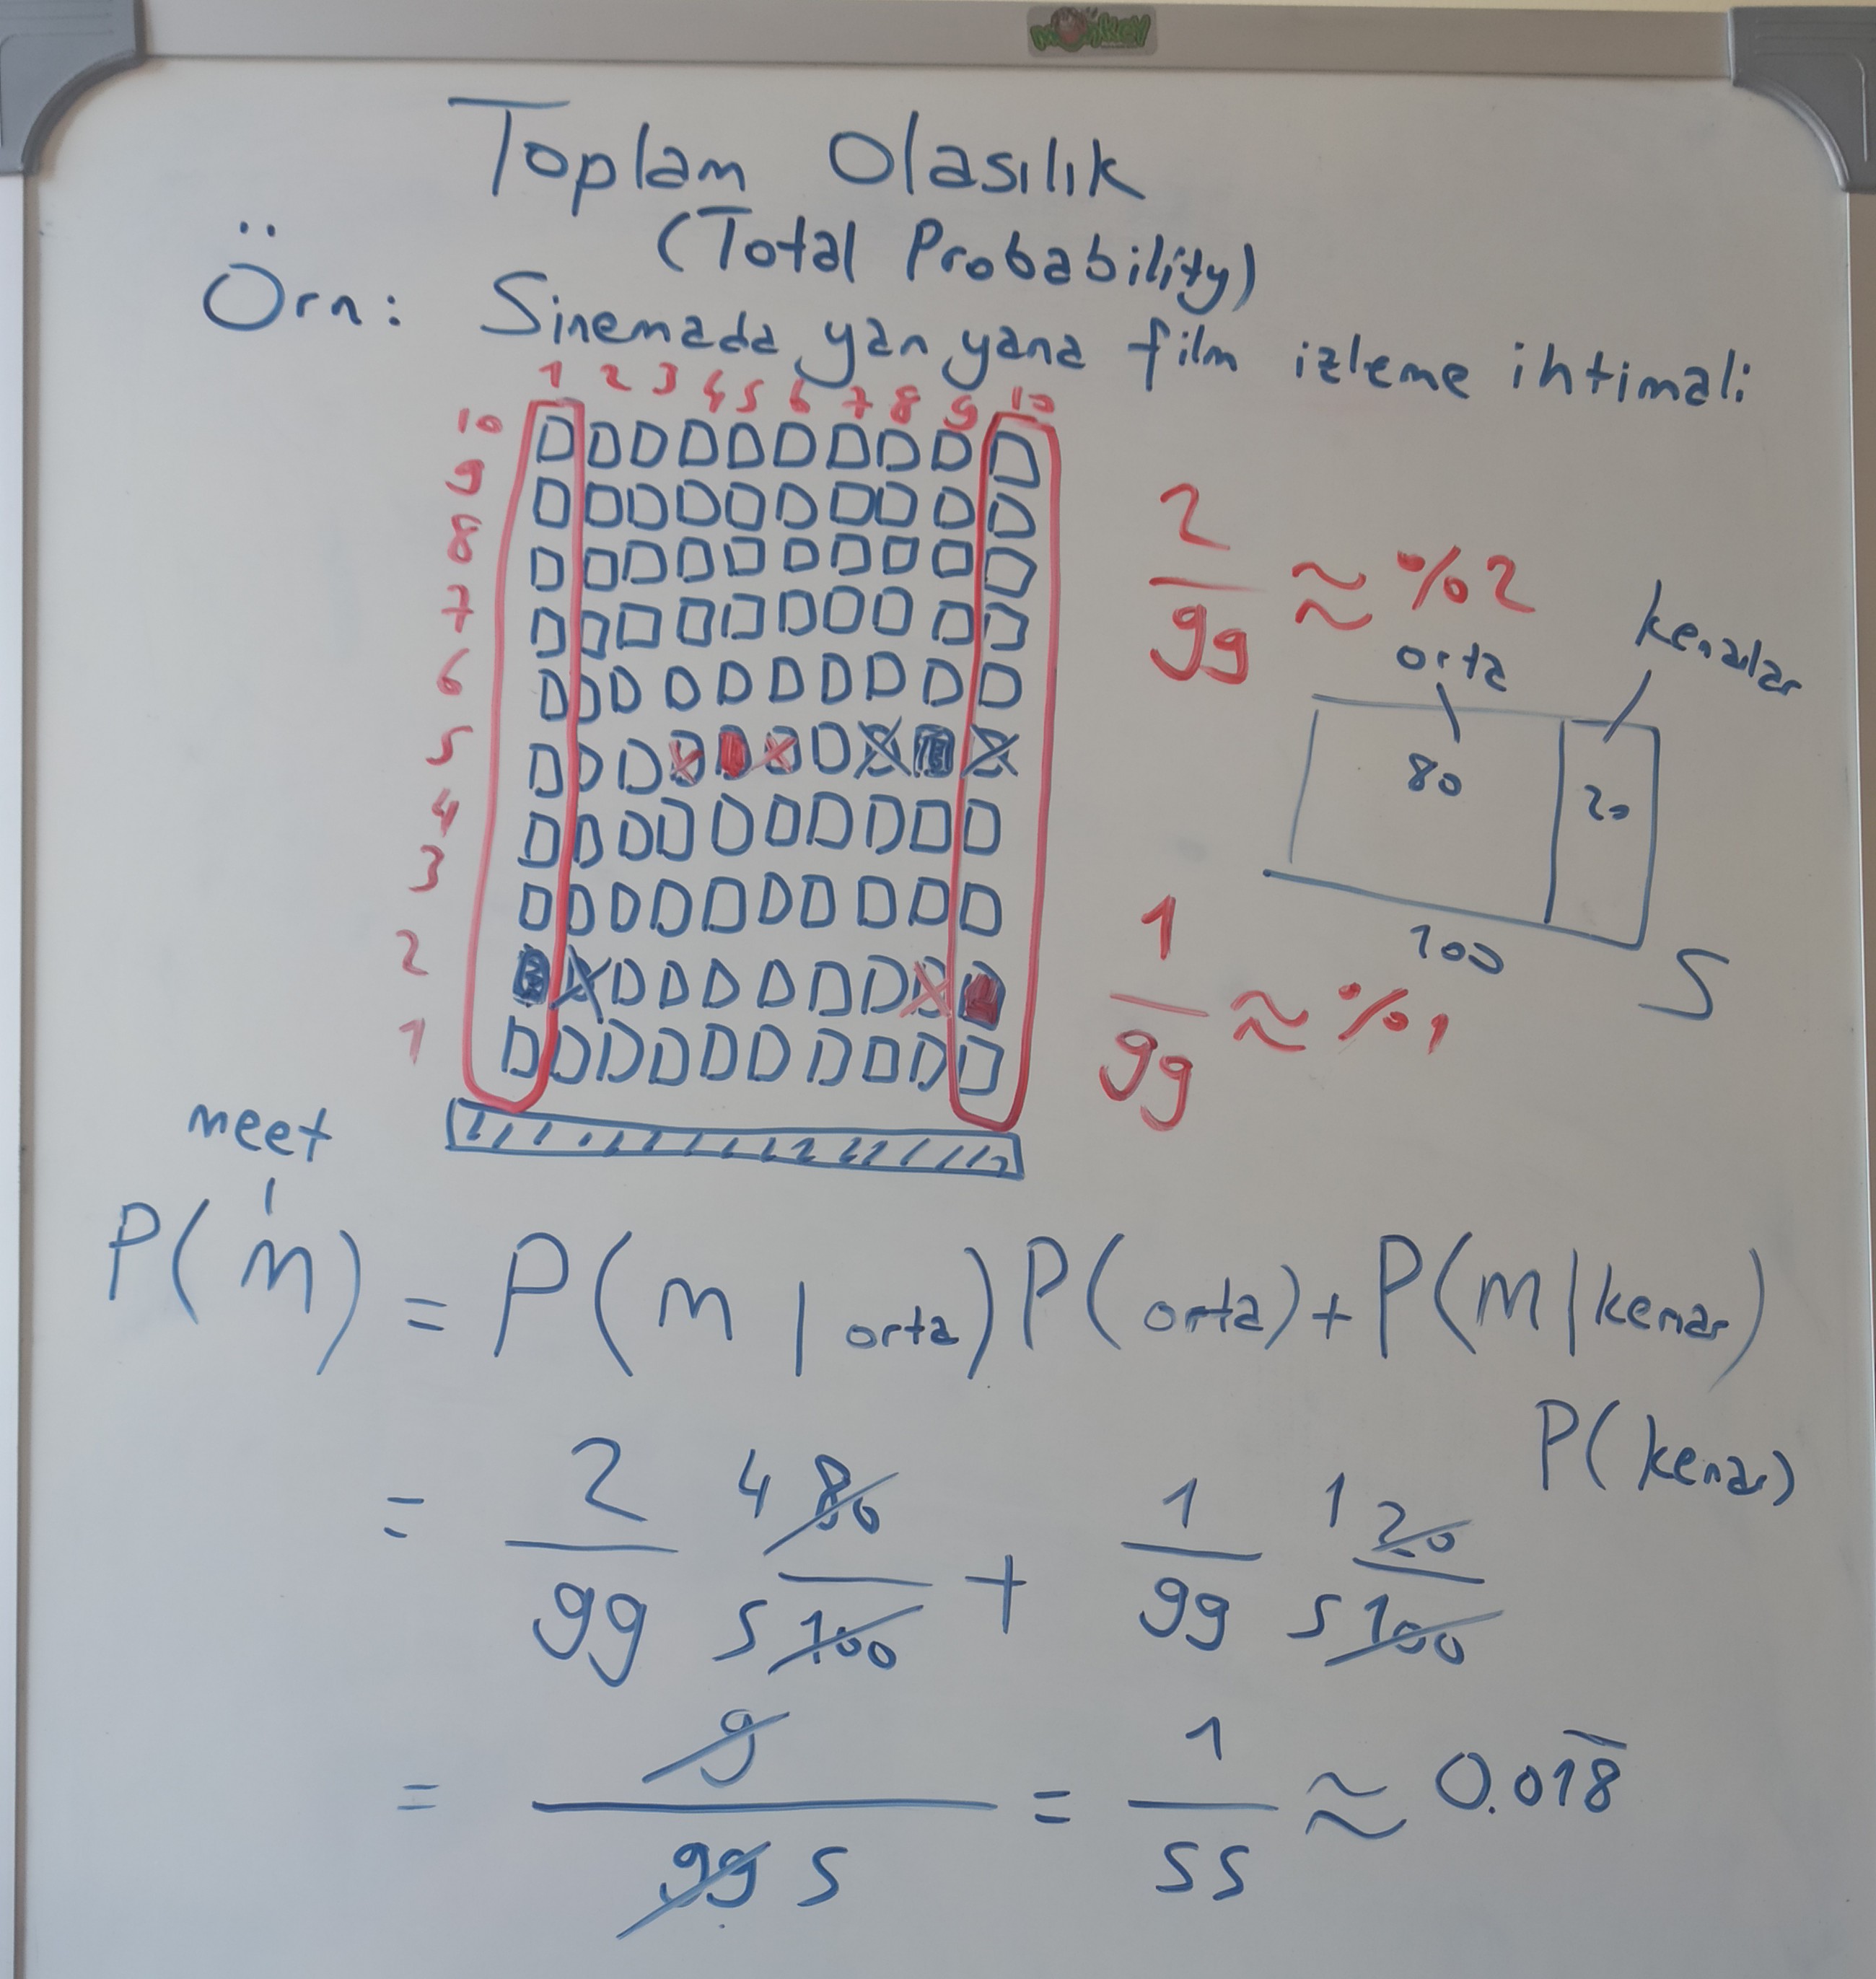 monkey
Toplam Olasılık
(Total Probability)
Örn: Sinemada yan yana film izleme ihtimali
1 2 3 4 5 6 7 8 9 10
10
9
8
7
6
5
4
3
2
1
2/99 ≈ %2
orta
kenarlar
80
20
100
S
1/99 ≈ %1
meet
P(M) = P(M | orta) P(orta) + P(M | kenar)
P(kenar)
= 2/99 4 80/5 100 + 1/99 1 20/5 100
= 9/99 5 = 1/55 ≈ 0.018̅